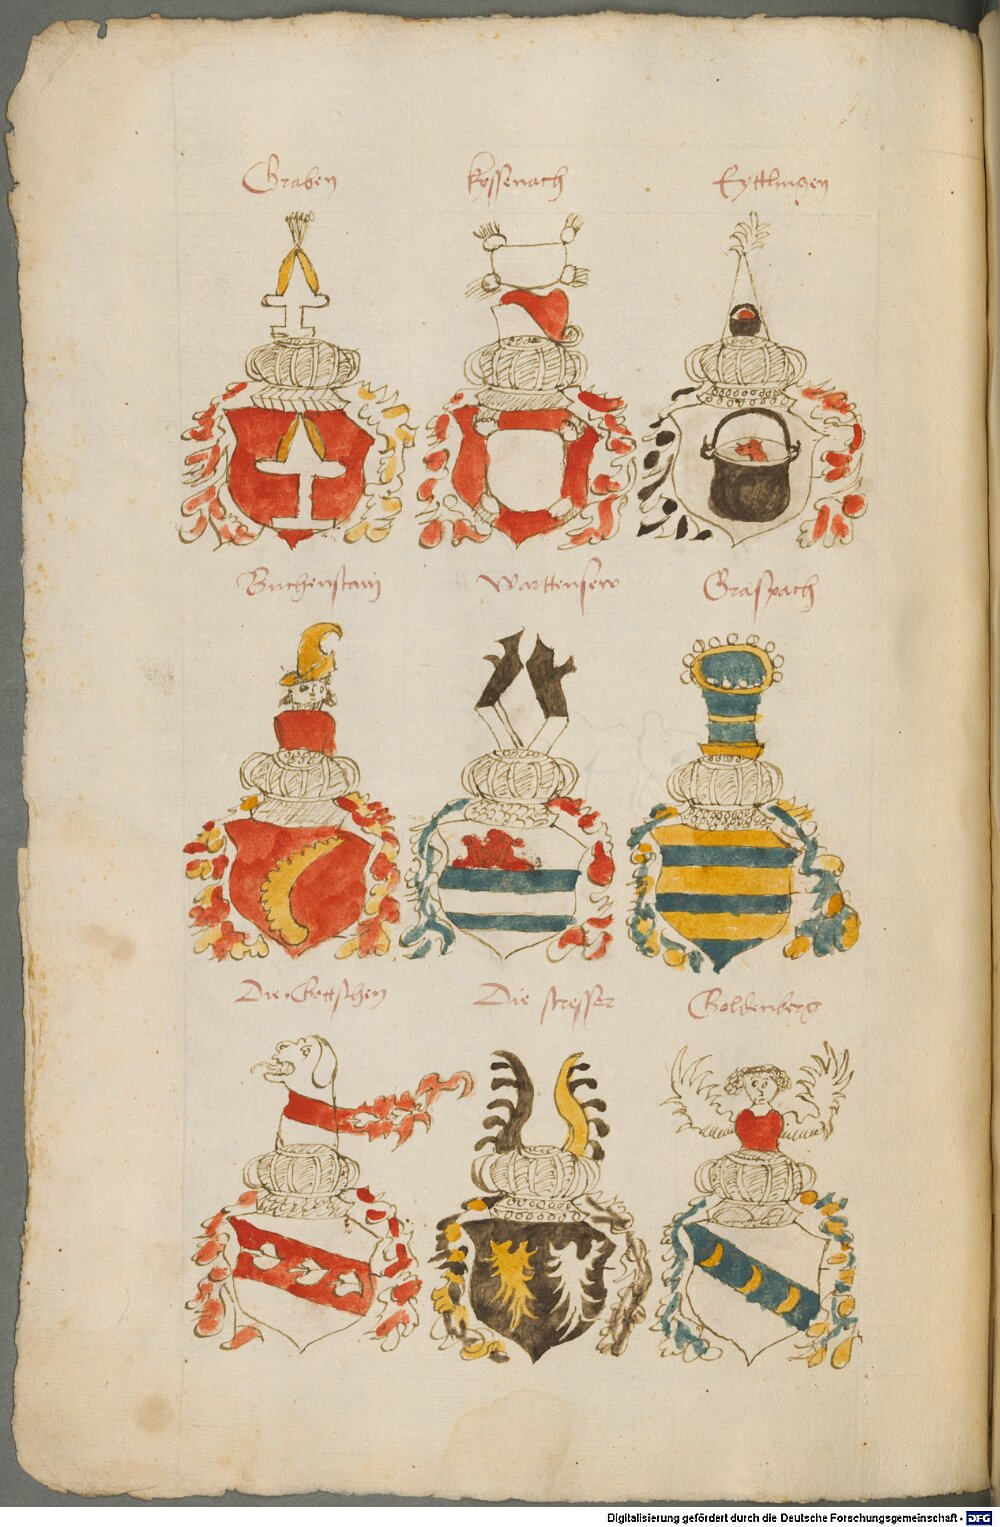 Graben
Kossenach
Eyttlingen
Buchenstain
Warttensew
Graispach
Die Gottschen
Die stresser
Goldenberg
Digitalisierung gefördert durch die Deutsche Forschungsgemeinschaft - DFG